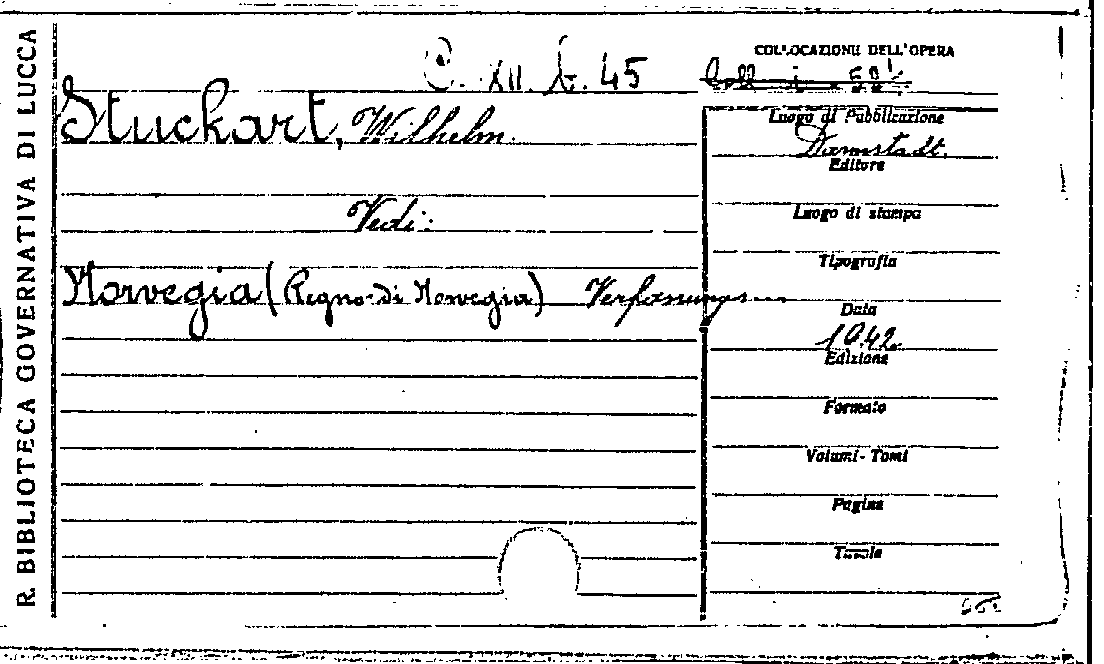 R. BIBLIOTECA GOVERNATIVA DI LUCCA
COLLOCAZIONE DELL'OPERA
45
Stuckart, Wilhelm.
Vedi:
Norvegia (Regno di Norvegia) Verfassungs...
Luogo di Pubblicazione
Darmstadt.
Editore
Luogo di stampa
Tipografia
Data
1942
Edizione
Formato
Volumi - Tomi
Pagine
Tavole